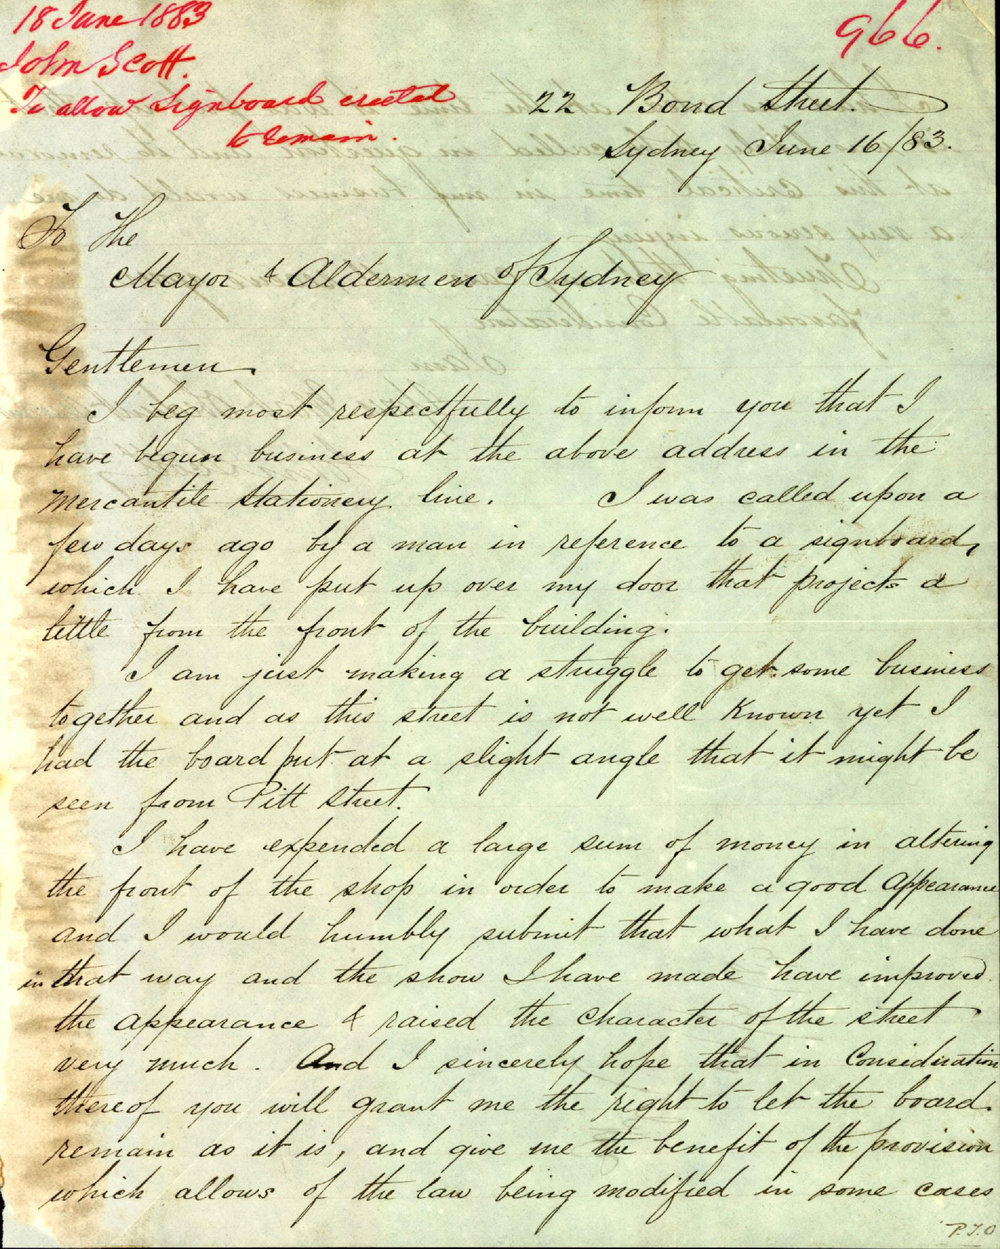 18 June 1883
John Scott.
To allow Signboard erected
to remain.
966.
22 Bond Street.
Sydney June 16/83.
To The
Mayor & Aldermen of Sydney
Gentlemen
I beg most respectfully to inform you that I
have begun business at the above address in the
Mercantile Stationery line. I was called upon a
few days ago by a man in reference to a signboard,
which I have put up over my door that projects a
little from the front of the building.
I am just making a struggle to get some business
together and as this street is not well known yet I
had the board put at a slight angle that it might be
seen from Pitt Street.
I have expended a large sum of money in altering
the front of the shop in order to make a good appearance
and I would humbly submit that what I have done
in that way and the show I have made have improved
the appearance & raised the character of the street
very much. And I sincerely hope that in Consideration
thereof you will grant me the right to let the board
remain as it is, and give me the benefit of the provision
which allows of the law being modified in some cases
P.T.O